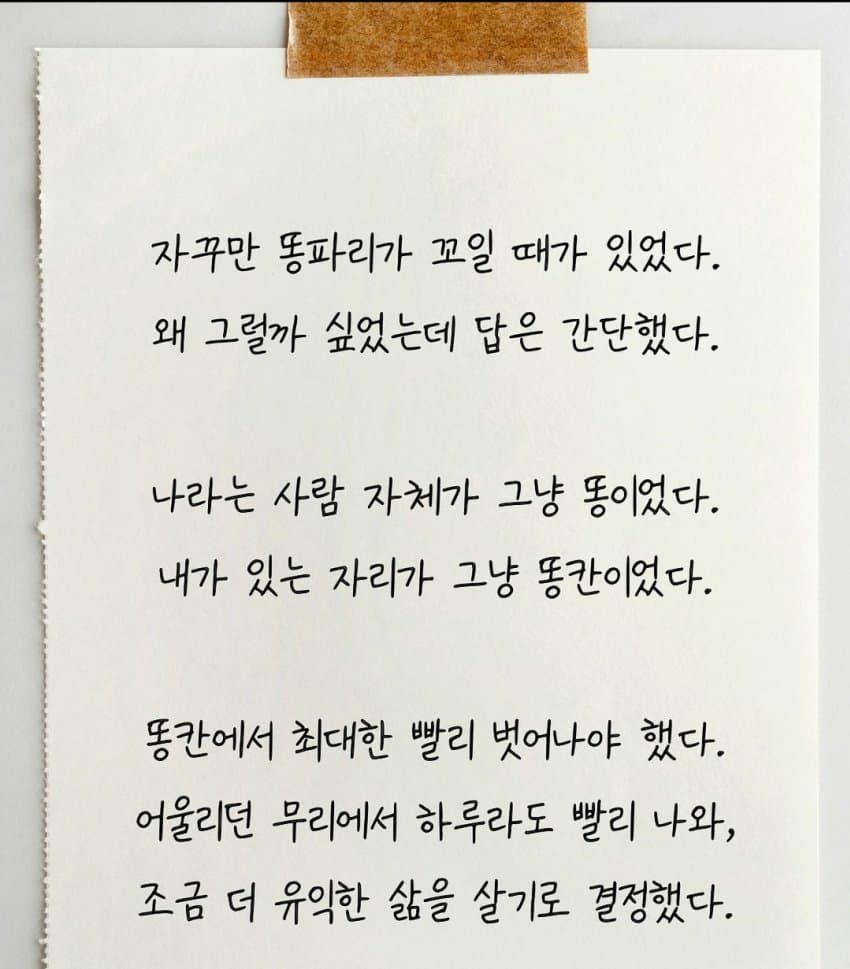 자꾸만 똥파리가 꼬일 때가 있었다.
왜 그럴까 싶었는데 답은 간단했다.
나라는 사람 자체가 그냥 똥이었다.
내가 있는 자리가 그냥 똥칸이었다.
똥칸에서 최대한 빨리 벗어나야 했다.
어울리던 무리에서 하루라도 빨리 나와,
조금 더 유익한 삶을 살기로 결정했다.